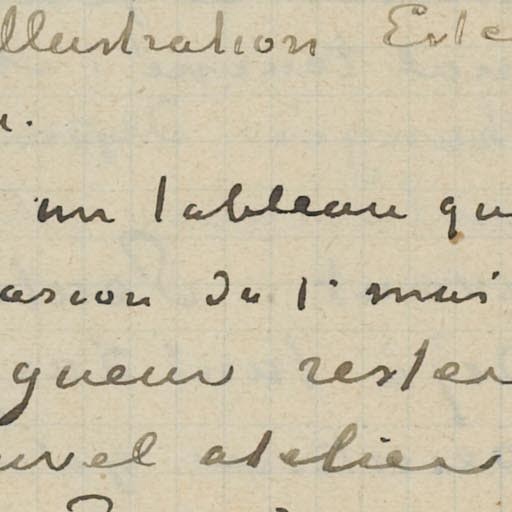 llustration Este
un tableau qu
asion du 1r mai
gueur rester
uvel atelier